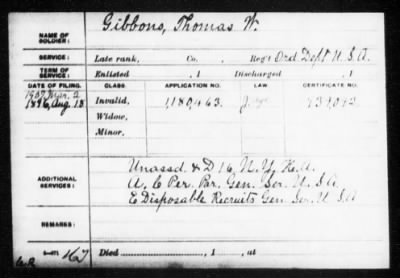 Gibbons, Thomas W.
NAME OF SOLDIER:
SERVICE: Late rank, Co. , Reg't Ord. Dept U.S.A.
TERM OF SERVICE: Enlisted , 1 Discharged , 1
DATE OF FILING. CLASS. APPLICATION NO. LAW. CERTIFICATE NO.
1907 Mar. 2
1896, Aug. 13 Invalid, 1180463
Widow,
Minor,
ADDITIONAL SERVICES:
Unassd. & D 16, N.Y. H.A.
A, C Per. Par. Gen. Ser. U.S.A.
E Disposable Recruits Gen. Ser. U.S.A
REMARKS:
Died , 1 , at